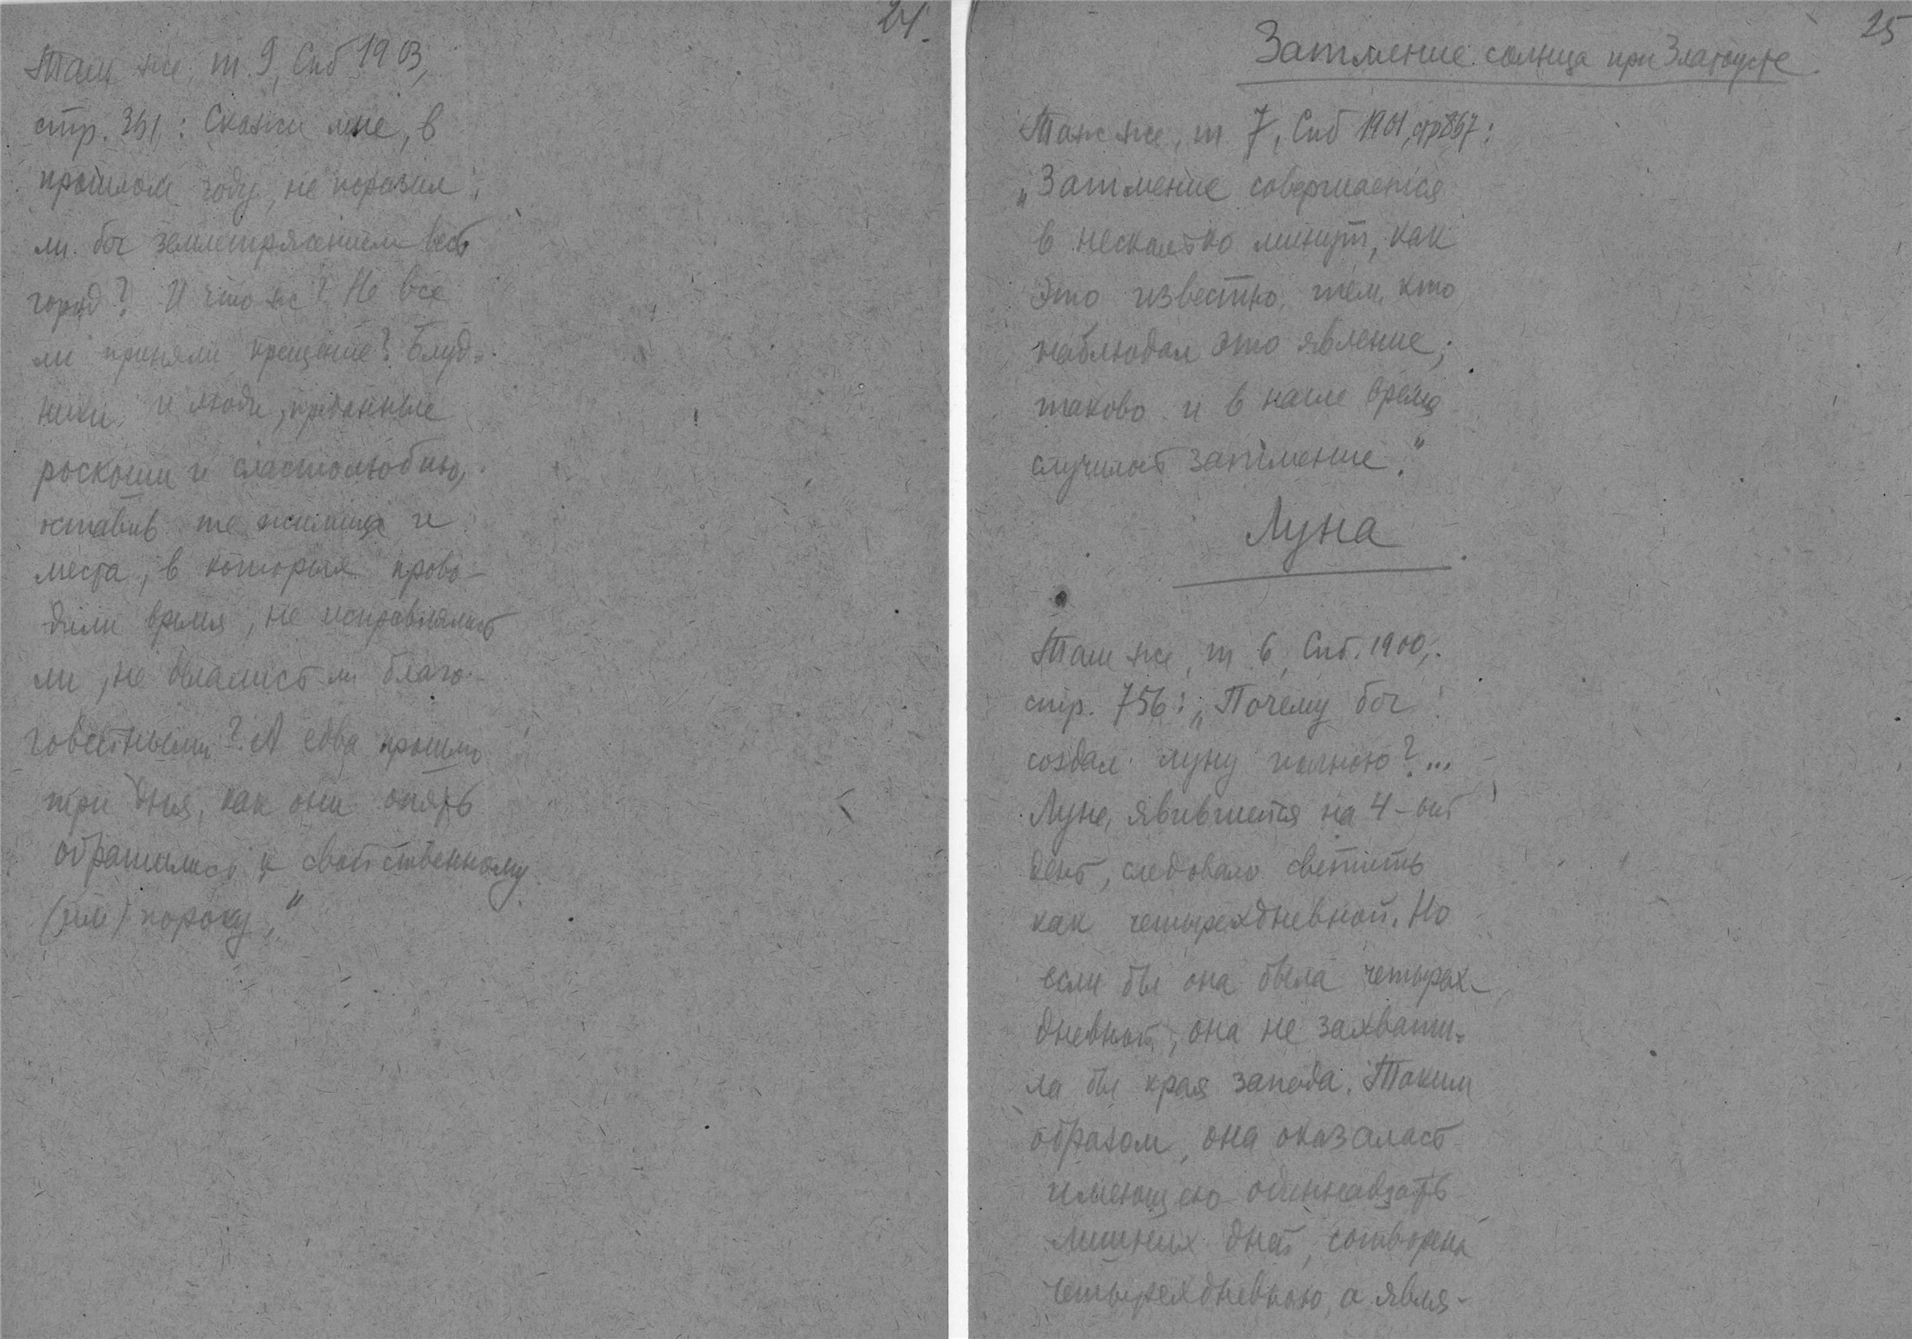 24.
Там же, т. 9, Спб 1903,
стр. 351: Скажи мне, в
прошлом году, не поразил
ли бог землетрясением весь
город? И что же? Не все
ли приняли крещение? Блуд-
ники и люди, преданные
роскоши и сластолюбию,
оставив те жилища и
места, в которых прово-
дили время, не исправлялись
ли, не делались ли благо-
говейными? А едва прошло
три дня, как они опять
обратились к свойственному
(им) пороку."
25
Затмение солнца при Златоусте
Там же, т 7, Спб 1901, стр 867:
„Затмение совершается
в несколько минут, как
это известно тем, кто
наблюдал это явление;
таково и в наше время
случилось затмение."
Луна
Там же, т 6, Спб. 1900,
стр. 756: „Почему бог
создал луну полною?...
Луне, явившейся на 4-ый
день, следовало светить
как четырехдневной. Но
если бы она была четырех-
дневной, она не захвати-
ла бы края запада. Таким
образом, она оказалась
имеющею одиннадцать
лишних дней, сотворена
четырехдневною, а явля-